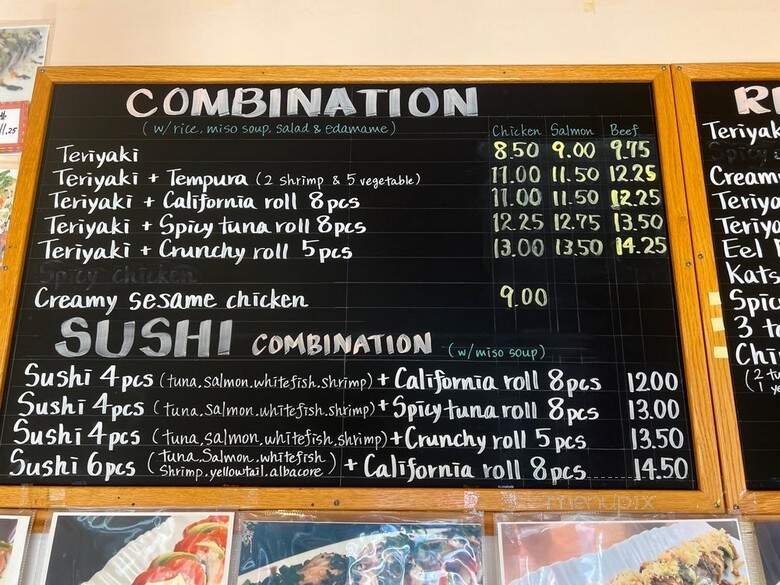 COMBINATION
(w/rice, miso soup, salad & edamame) Chicken Salmon Beef
Teriyaki 8.50 9.00 9.75
Teriyaki + Tempura (2 shrimp & 5 vegetable) 11.00 11.50 12.25
Teriyaki + California roll 8pcs 11.00 11.50 12.25
Teriyaki + Spicy tuna roll 8pcs 12.25 12.75 13.50
Teriyaki + Crunchy roll 5pcs 13.00 13.50 14.25
Spicy chicken
Creamy sesame chicken 9.00
SUSHI COMBINATION (w/miso soup)
Sushi 4pcs (tuna, salmon, whitefish, shrimp) + California roll 8pcs 12.00
Sushi 4pcs (tuna, salmon, whitefish, shrimp) + Spicy tuna roll 8pcs 13.00
Sushi 4pcs (tuna, salmon, whitefish, shrimp) + Crunchy roll 5pcs 13.50
Sushi 6pcs (tuna, salmon, whitefish
shrimp, yellowtail, albacore) + California roll 8pcs 14.50
R
Teriyak
Cream
Teriya
Teriya
Eel
Kats
Spic
3 t
Chi
(2 tu
1 ye
11.25
menupix